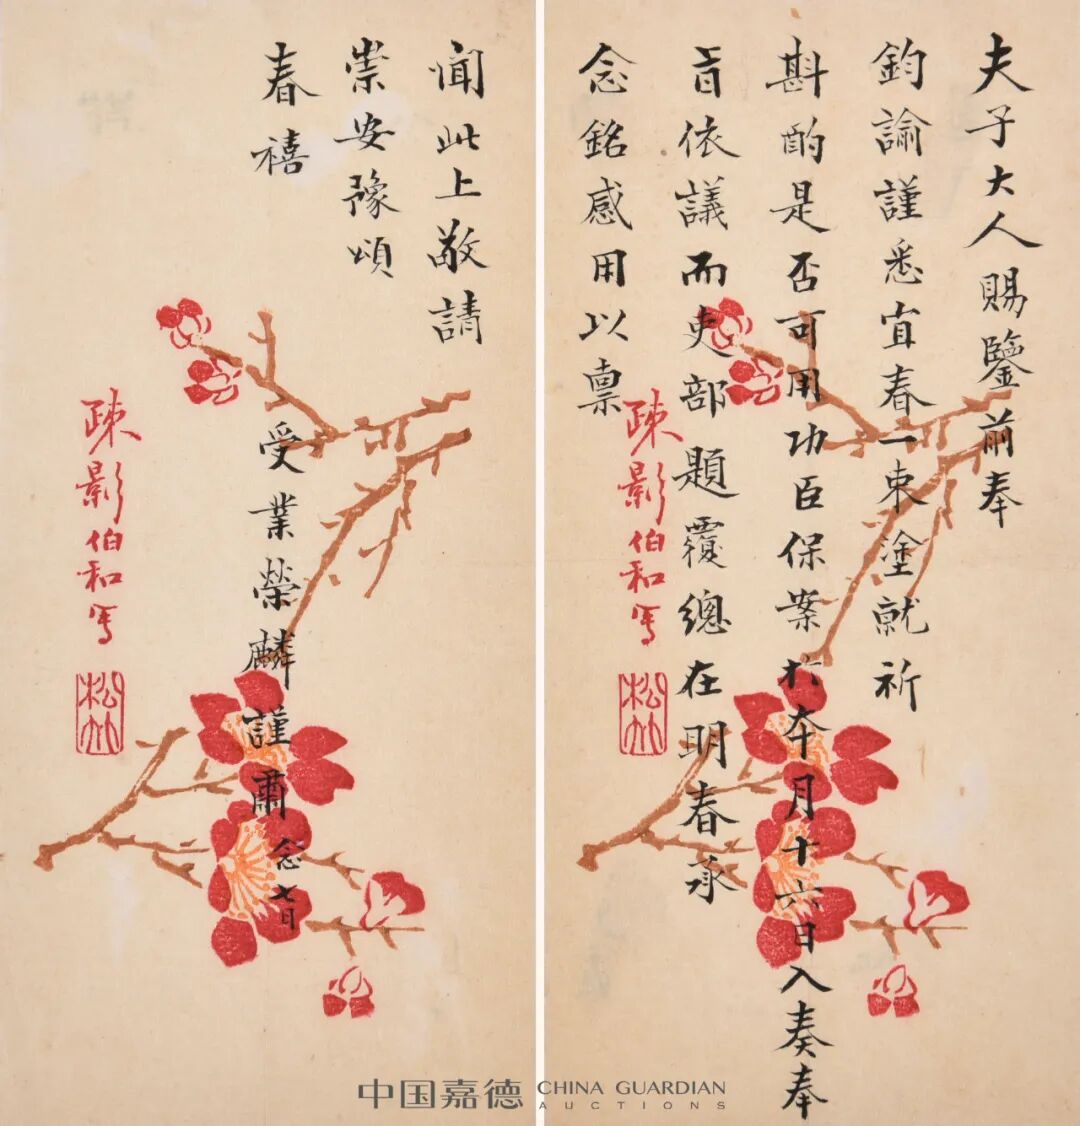 夫子大人賜鑒前奉
鈞諭謹悉宜春一束塗就祈
斟酌是否可用功臣保案於本月十六日入奏奉
旨依議而吏部題覆總在明春承
念銘感用以稟
疎影伯和寫
松竹
聞此上敬請
崇安豫頌
春禧
受業榮麟謹肅
念七日
疎影伯和寫
松竹
中国嘉德 CHINA GUARDIAN
AUCTIONS